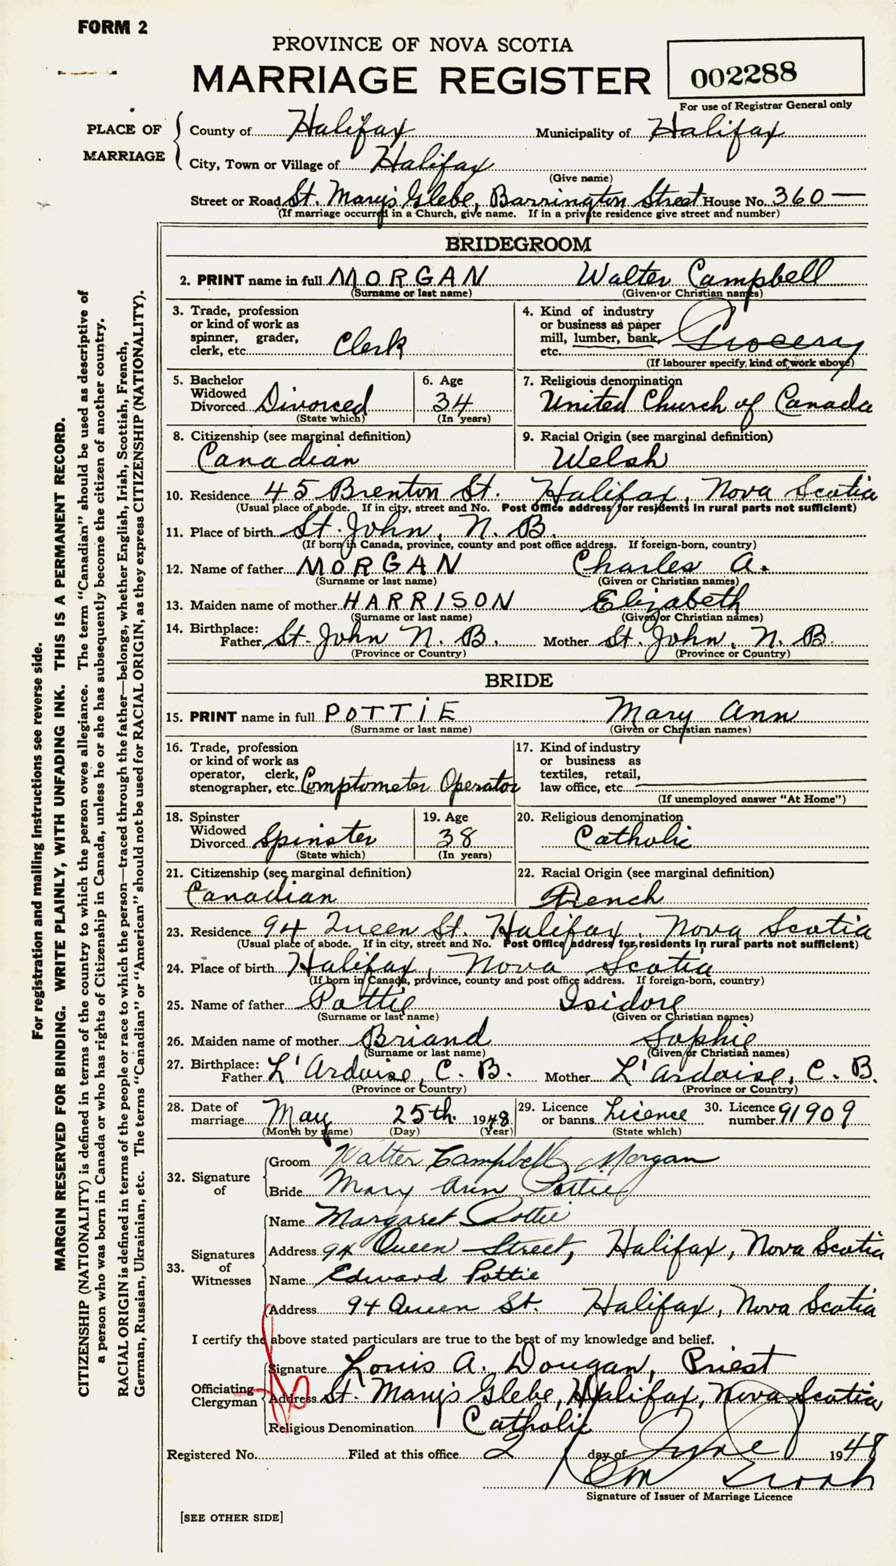 FORM 2
PROVINCE OF NOVA SCOTIA
MARRIAGE REGISTER
002288
For use of Registrar General only
PLACE OF MARRIAGE
County of Halifax Municipality of Halifax
City, Town or Village of Halifax
(Give name)
Street or Road St. Mary's Glebe, Barrington Street House No. 360
(If marriage occurred in a Church, give name. If in a private residence give street and number)
BRIDEGROOM
2. PRINT name in full MORGAN Walter Campbell
(Surname or last name) (Given or Christian names)
3. Trade, profession or kind of work as spinner, grader, clerk, etc. Clerk
4. Kind of industry or business as paper mill, lumber, bank, etc. Grocery
(If labourer specify, kind of work above)
5. Bachelor Widowed Divorced Divorced
(State which)
6. Age 34
(In years)
7. Religious denomination United Church of Canada
8. Citizenship (see marginal definition) Canadian
9. Racial Origin (see marginal definition) Welsh
10. Residence 45 Brenton St. Halifax, Nova Scotia
(Usual place of abode. If in city, street and No. Post Office address for residents in rural parts not sufficient)
11. Place of birth St. John, N. B.
(If born in Canada, province, county and post office address. If foreign-born, country)
12. Name of father MORGAN Charles A.
(Surname or last name) (Given or Christian names)
13. Maiden name of mother HARRISON Elizabeth
(Surname or last name) (Given or Christian names)
14. Birthplace: Father St. John N. B. Mother St. John, N. B.
(Province or Country) (Province or Country)
BRIDE
15. PRINT name in full POTTIE Mary Ann
(Surname or last name) (Given or Christian names)
16. Trade, profession or kind of work as operator, clerk, stenographer, etc. Comptometer Operator
17. Kind of industry or business as textiles, retail, law office, etc.
(If unemployed answer "At Home")
18. Spinster Widowed Divorced Spinster
(State which)
19. Age 38
(In years)
20. Religious denomination Catholic
21. Citizenship (see marginal definition) Canadian
22. Racial Origin (see marginal definition) French
23. Residence 94 Queen St. Halifax, Nova Scotia
(Usual place of abode. If in city, street and No. Post Office address for residents in rural parts not sufficient)
24. Place of birth Halifax, Nova Scotia
(If born in Canada, province, county and post office address. If foreign-born, country)
25. Name of father Pottie Isidore
(Surname or last name) (Given or Christian names)
26. Maiden name of mother Briand Sophie
(Surname or last name) (Given or Christian names)
27. Birthplace: Father L'Ardoise, C. B. Mother L'Ardoise, C. B.
(Province or Country) (Province or Country)
28. Date of marriage May 25th 1948
(Month by name) (Day) (Year)
29. Licence or banns Licence
(State which)
30. Licence number 91909
32. Signature of
Groom Walter Campbell Morgan
Bride Mary Ann Pottie
33. Signatures of Witnesses
Name Margaret Pottie
Address 94 Queen Street, Halifax, Nova Scotia
Name Edward Pottie
Address 94 Queen St. Halifax, Nova Scotia
I certify the above stated particulars are true to the best of my knowledge and belief.
Officiating Clergyman
Signature Louis A. Dougan, Priest
Address St. Mary's Glebe, Halifax, Nova Scotia
Religious Denomination Catholic
Registered No. Filed at this office 2 day of June 1948
Signature of Issuer of Marriage Licence
[SEE OTHER SIDE]
For registration and mailing instructions see reverse side.
MARGIN RESERVED FOR BINDING. WRITE PLAINLY, WITH UNFADING INK. THIS IS A PERMANENT RECORD.
CITIZENSHIP (NATIONALITY) is defined in terms of the country to which the person owes allegiance. The term "Canadian" should be used as descriptive of
a person who was born in Canada or who has rights of Citizenship in Canada, unless he or she has subsequently become the citizen of another country.
RACIAL ORIGIN is defined in terms of the people or race to which the person—traced through the father—belongs, whether English, Irish, Scottish, French,
German, Russian, Ukrainian, etc. The terms "Canadian" or "American" should not be used for RACIAL ORIGIN, as they express CITIZENSHIP (NATIONALITY).